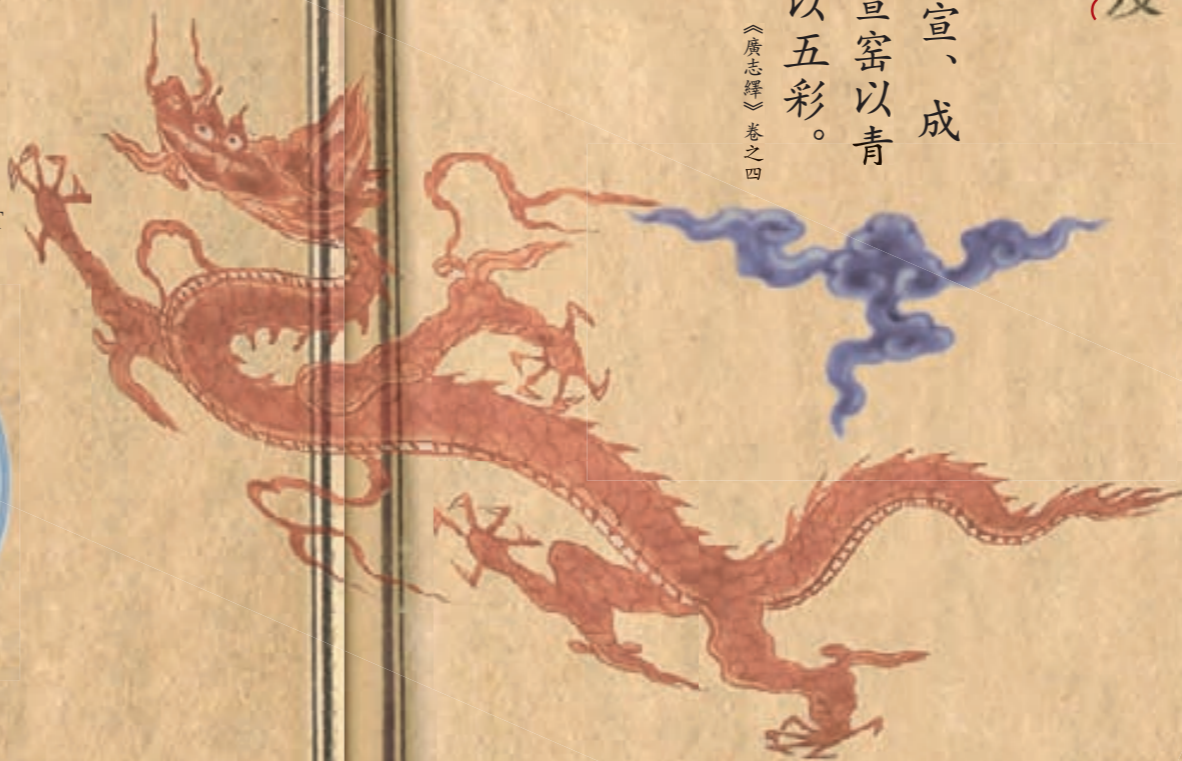 宣、成
宣窑以青
以五彩。
《廣志繹》卷之四